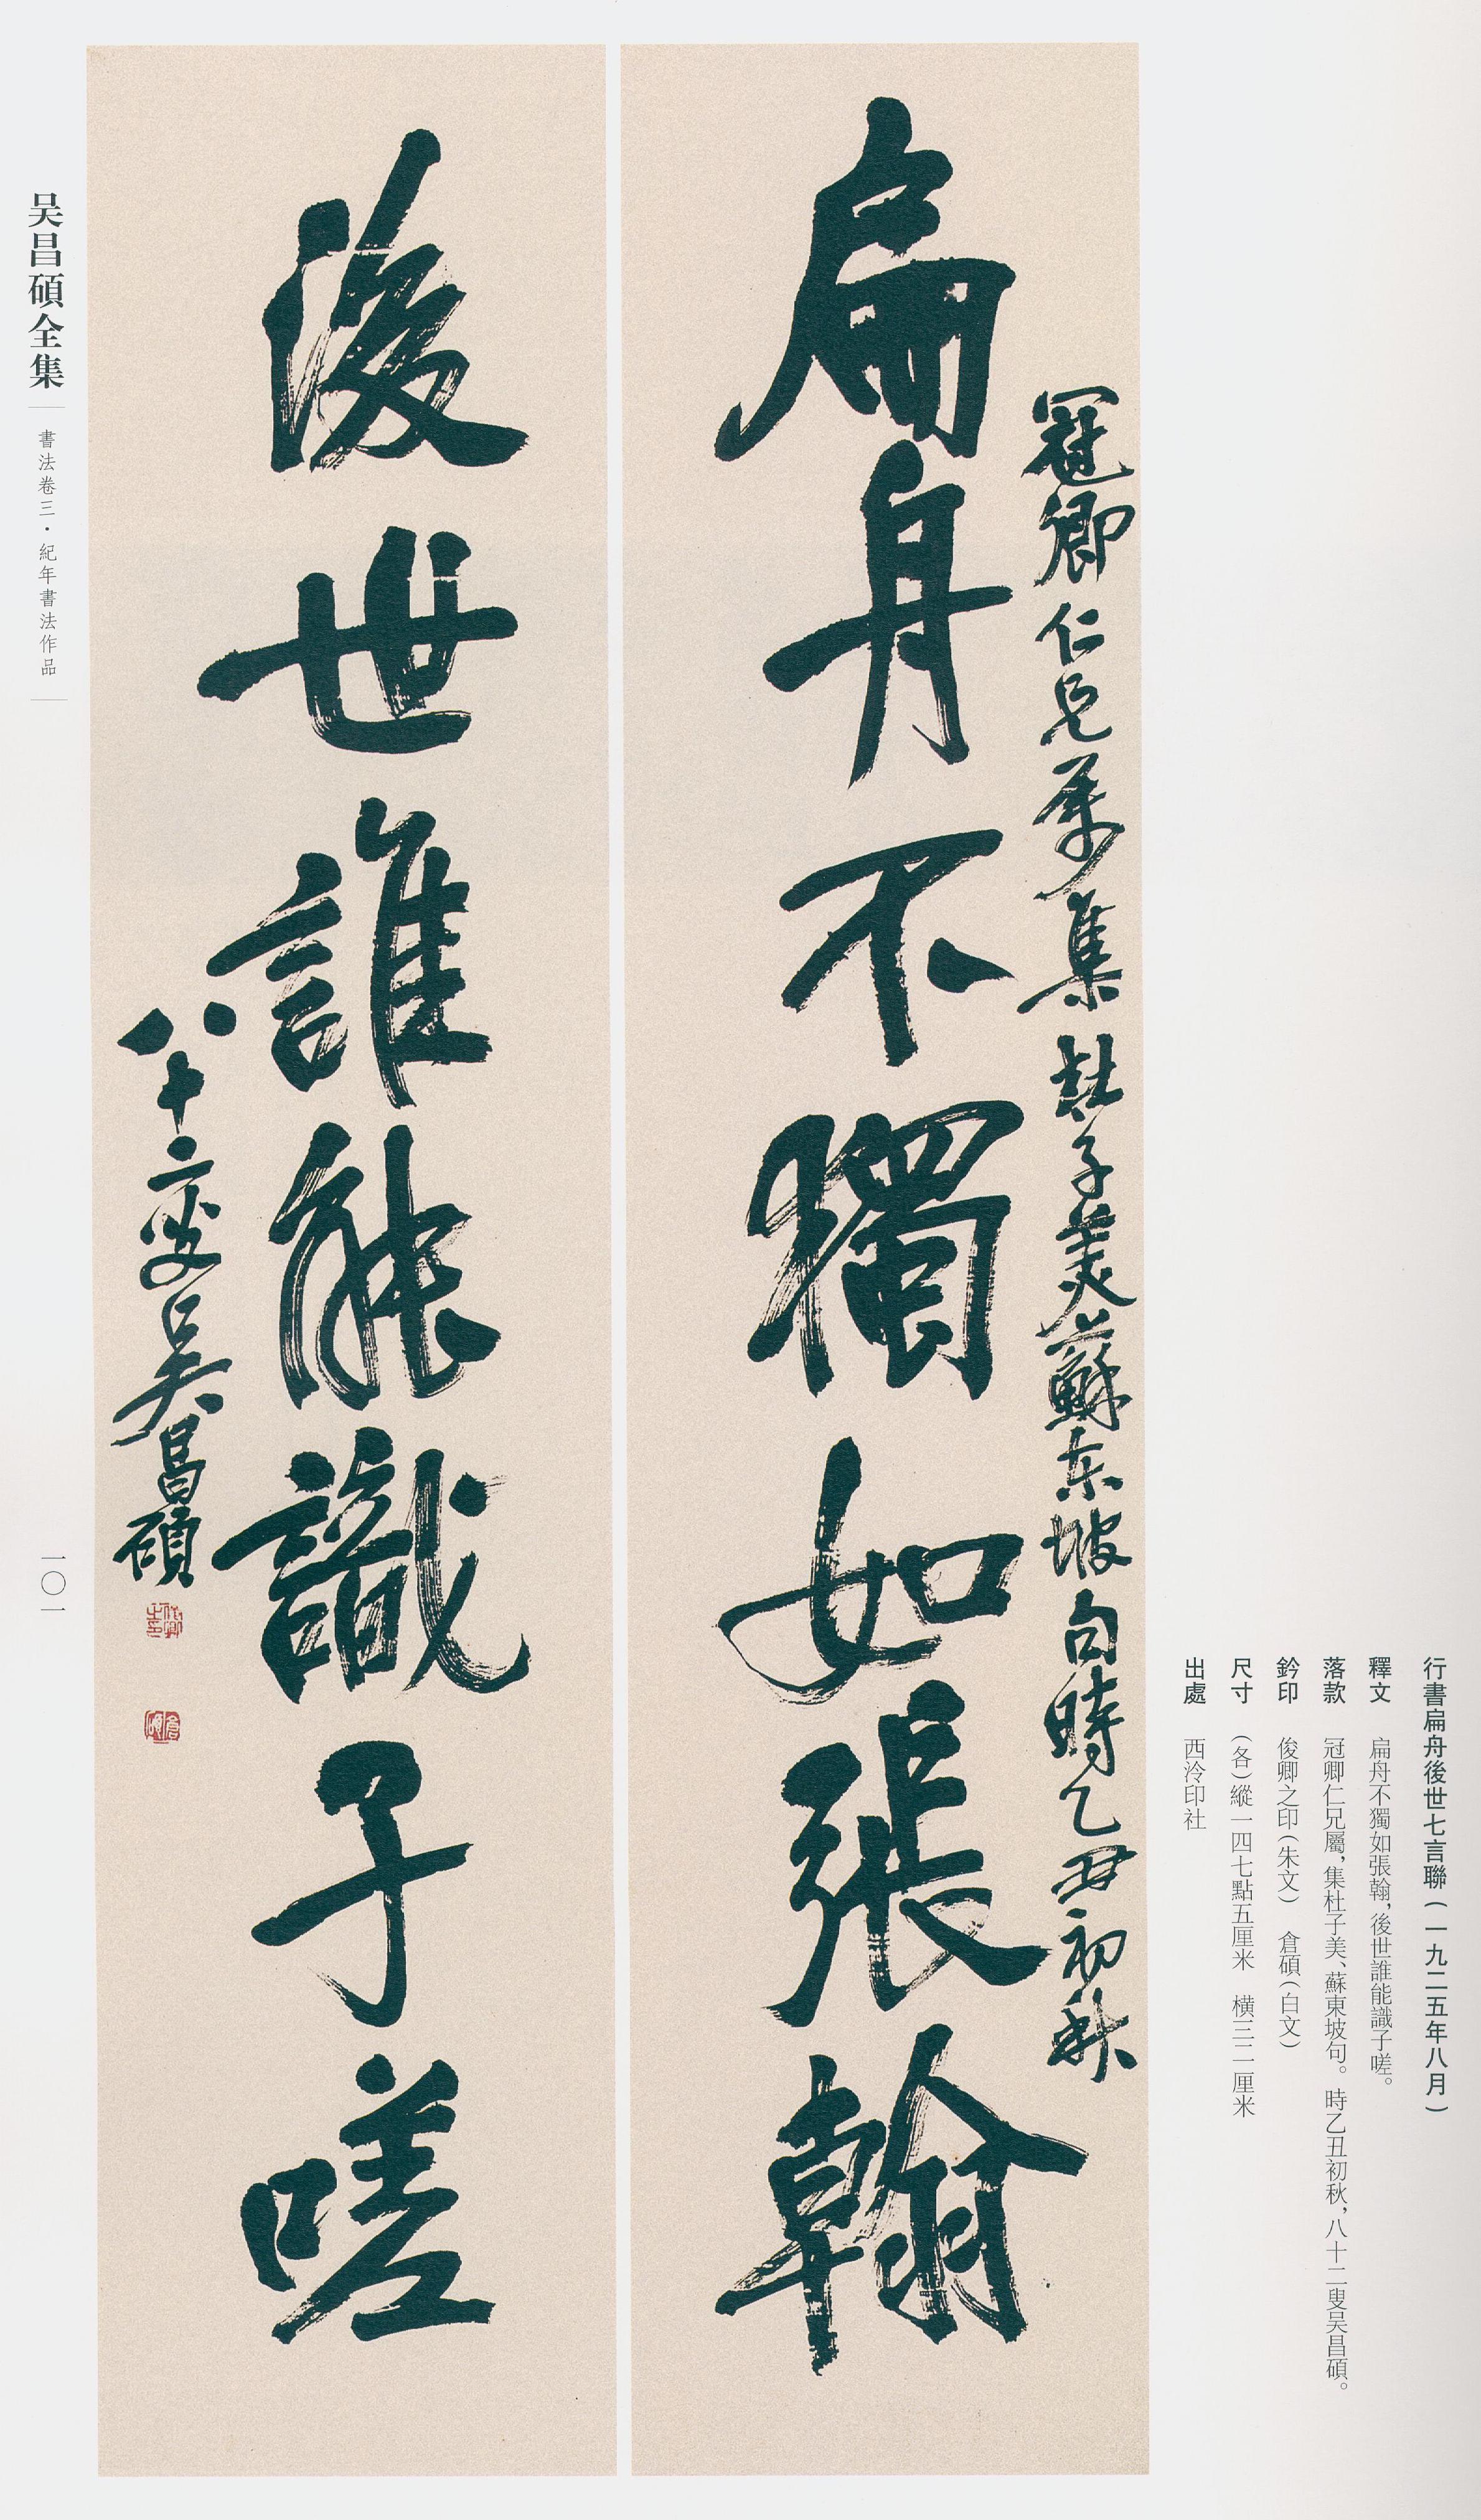 行書扁舟後世七言聯(一九二五年八月)
釋文 扁舟不獨如張翰,後世誰能識子嗟。
落款 冠卿仁兄屬,集杜子美、蘇東坡句。時乙丑初秋,八十二叟吴昌碩。
鈐印 俊卿之印(朱文) 倉碩(白文)
尺寸 (各)縱一四七點五厘米 橫三二厘米
出處 西泠印社
冠卿仁兄属集杜子美蘇东坡句時乙丑初秋
扁舟不獨如張翰
後世誰能識子嗟
八十二叟吴昌碩
俊卿之印
倉碩
吴昌碩全集
書法卷三·紀年書法作品
一〇一